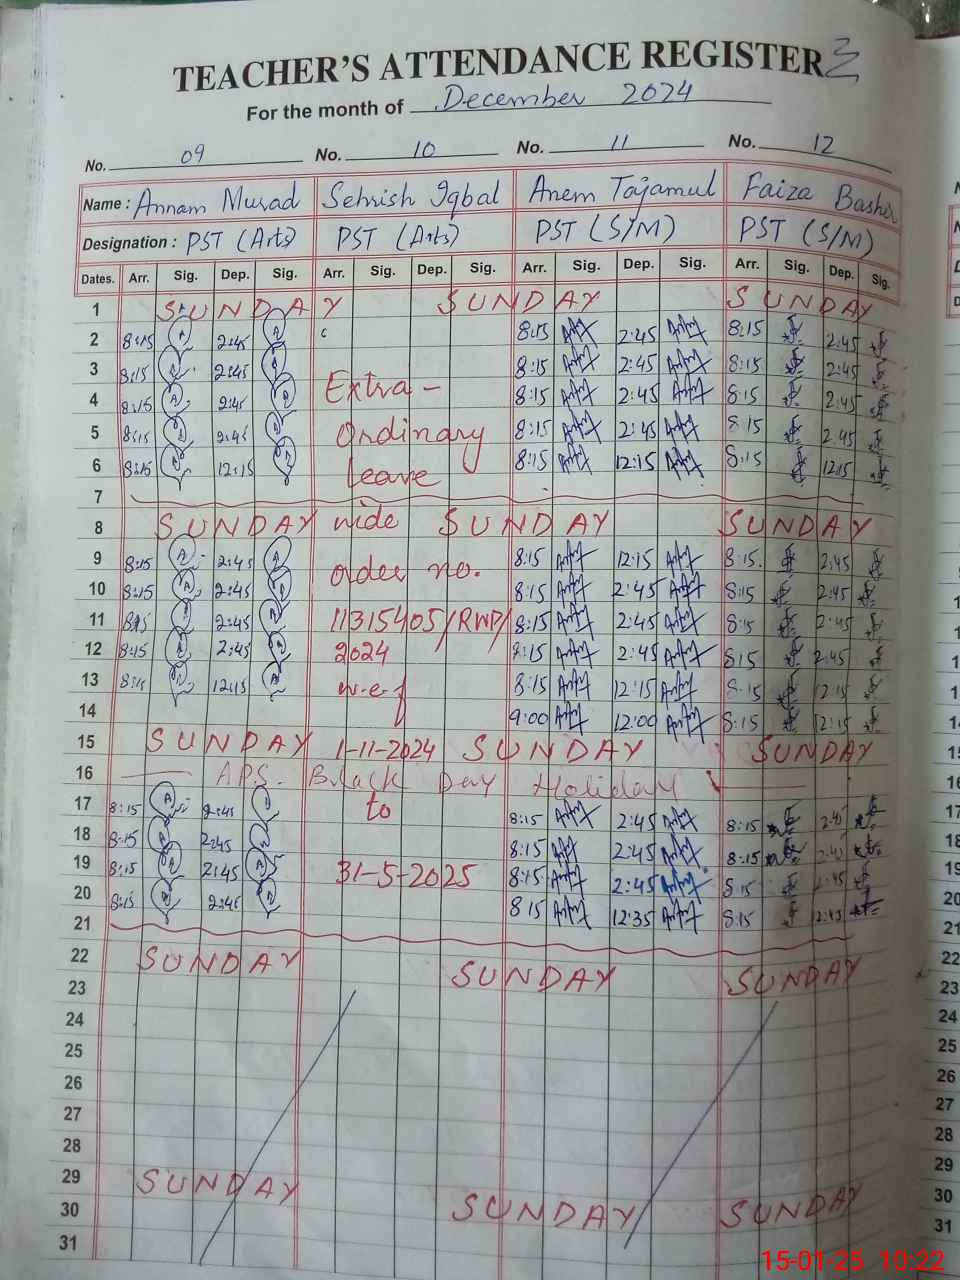 TEACHER'S ATTENDANCE REGISTER
For the month of December 2024
No. 09 No. 10 No. 11 No. 12
Name : Annam Murad Sehrish Iqbal Anem Tajamul Faiza Bashir
Designation : PST (Arts) PST (Arts) PST (S/M) PST (S/M)
Dates. Arr. Sig. Dep. Sig. Arr. Sig. Dep. Sig. Arr. Sig. Dep. Sig. Arr. Sig. Dep. Sig.
1 SUNDAY SUNDAY SUNDAY
2 8:15 2:45 8:15 2:45 8:15 2:45
3 8:15 2:45 8:15 2:45 8:15 2:45
4 8:15 2:45 Extra- 8:15 2:45 8:15 2:45
5 8:15 2:45 Ordinary 8:15 2:45 8:15 2:45
6 8:15 12:15 leave 8:15 12:15 8:15 12:15
7
8 SUNDAY wide SUNDAY SUNDAY
9 8:15 2:45 order no. 8:15 12:15 8:15 2:45
10 8:15 2:45 8:15 2:45 8:15 2:45
11 8:15 2:45 11315405/RWP/ 8:15 2:45 8:15 2:45
12 8:15 2:45 2024 8:15 2:45 8:15 2:45
13 8:15 12:15 w.e.f 8:15 12:15 8:15 12:15
14 9:00 12:00 8:15 12:15
15 SUNDAY 1-11-2024 SUNDAY SUNDAY
16 APS. Black Day Holiday
17 8:15 2:45 to 8:15 2:45 8:15 2:45
18 8:15 2:45 8:15 2:45 8:15 2:45
19 8:15 2:45 31-5-2025 8:15 2:45 8:15 2:45
20 8:15 2:45 8:15 12:35 8:15 12:45
21
22 SUNDAY SUNDAY SUNDAY
23
24
25
26
27
28
29 SUNDAY SUNDAY SUNDAY
30
31
15-01-25 10:22